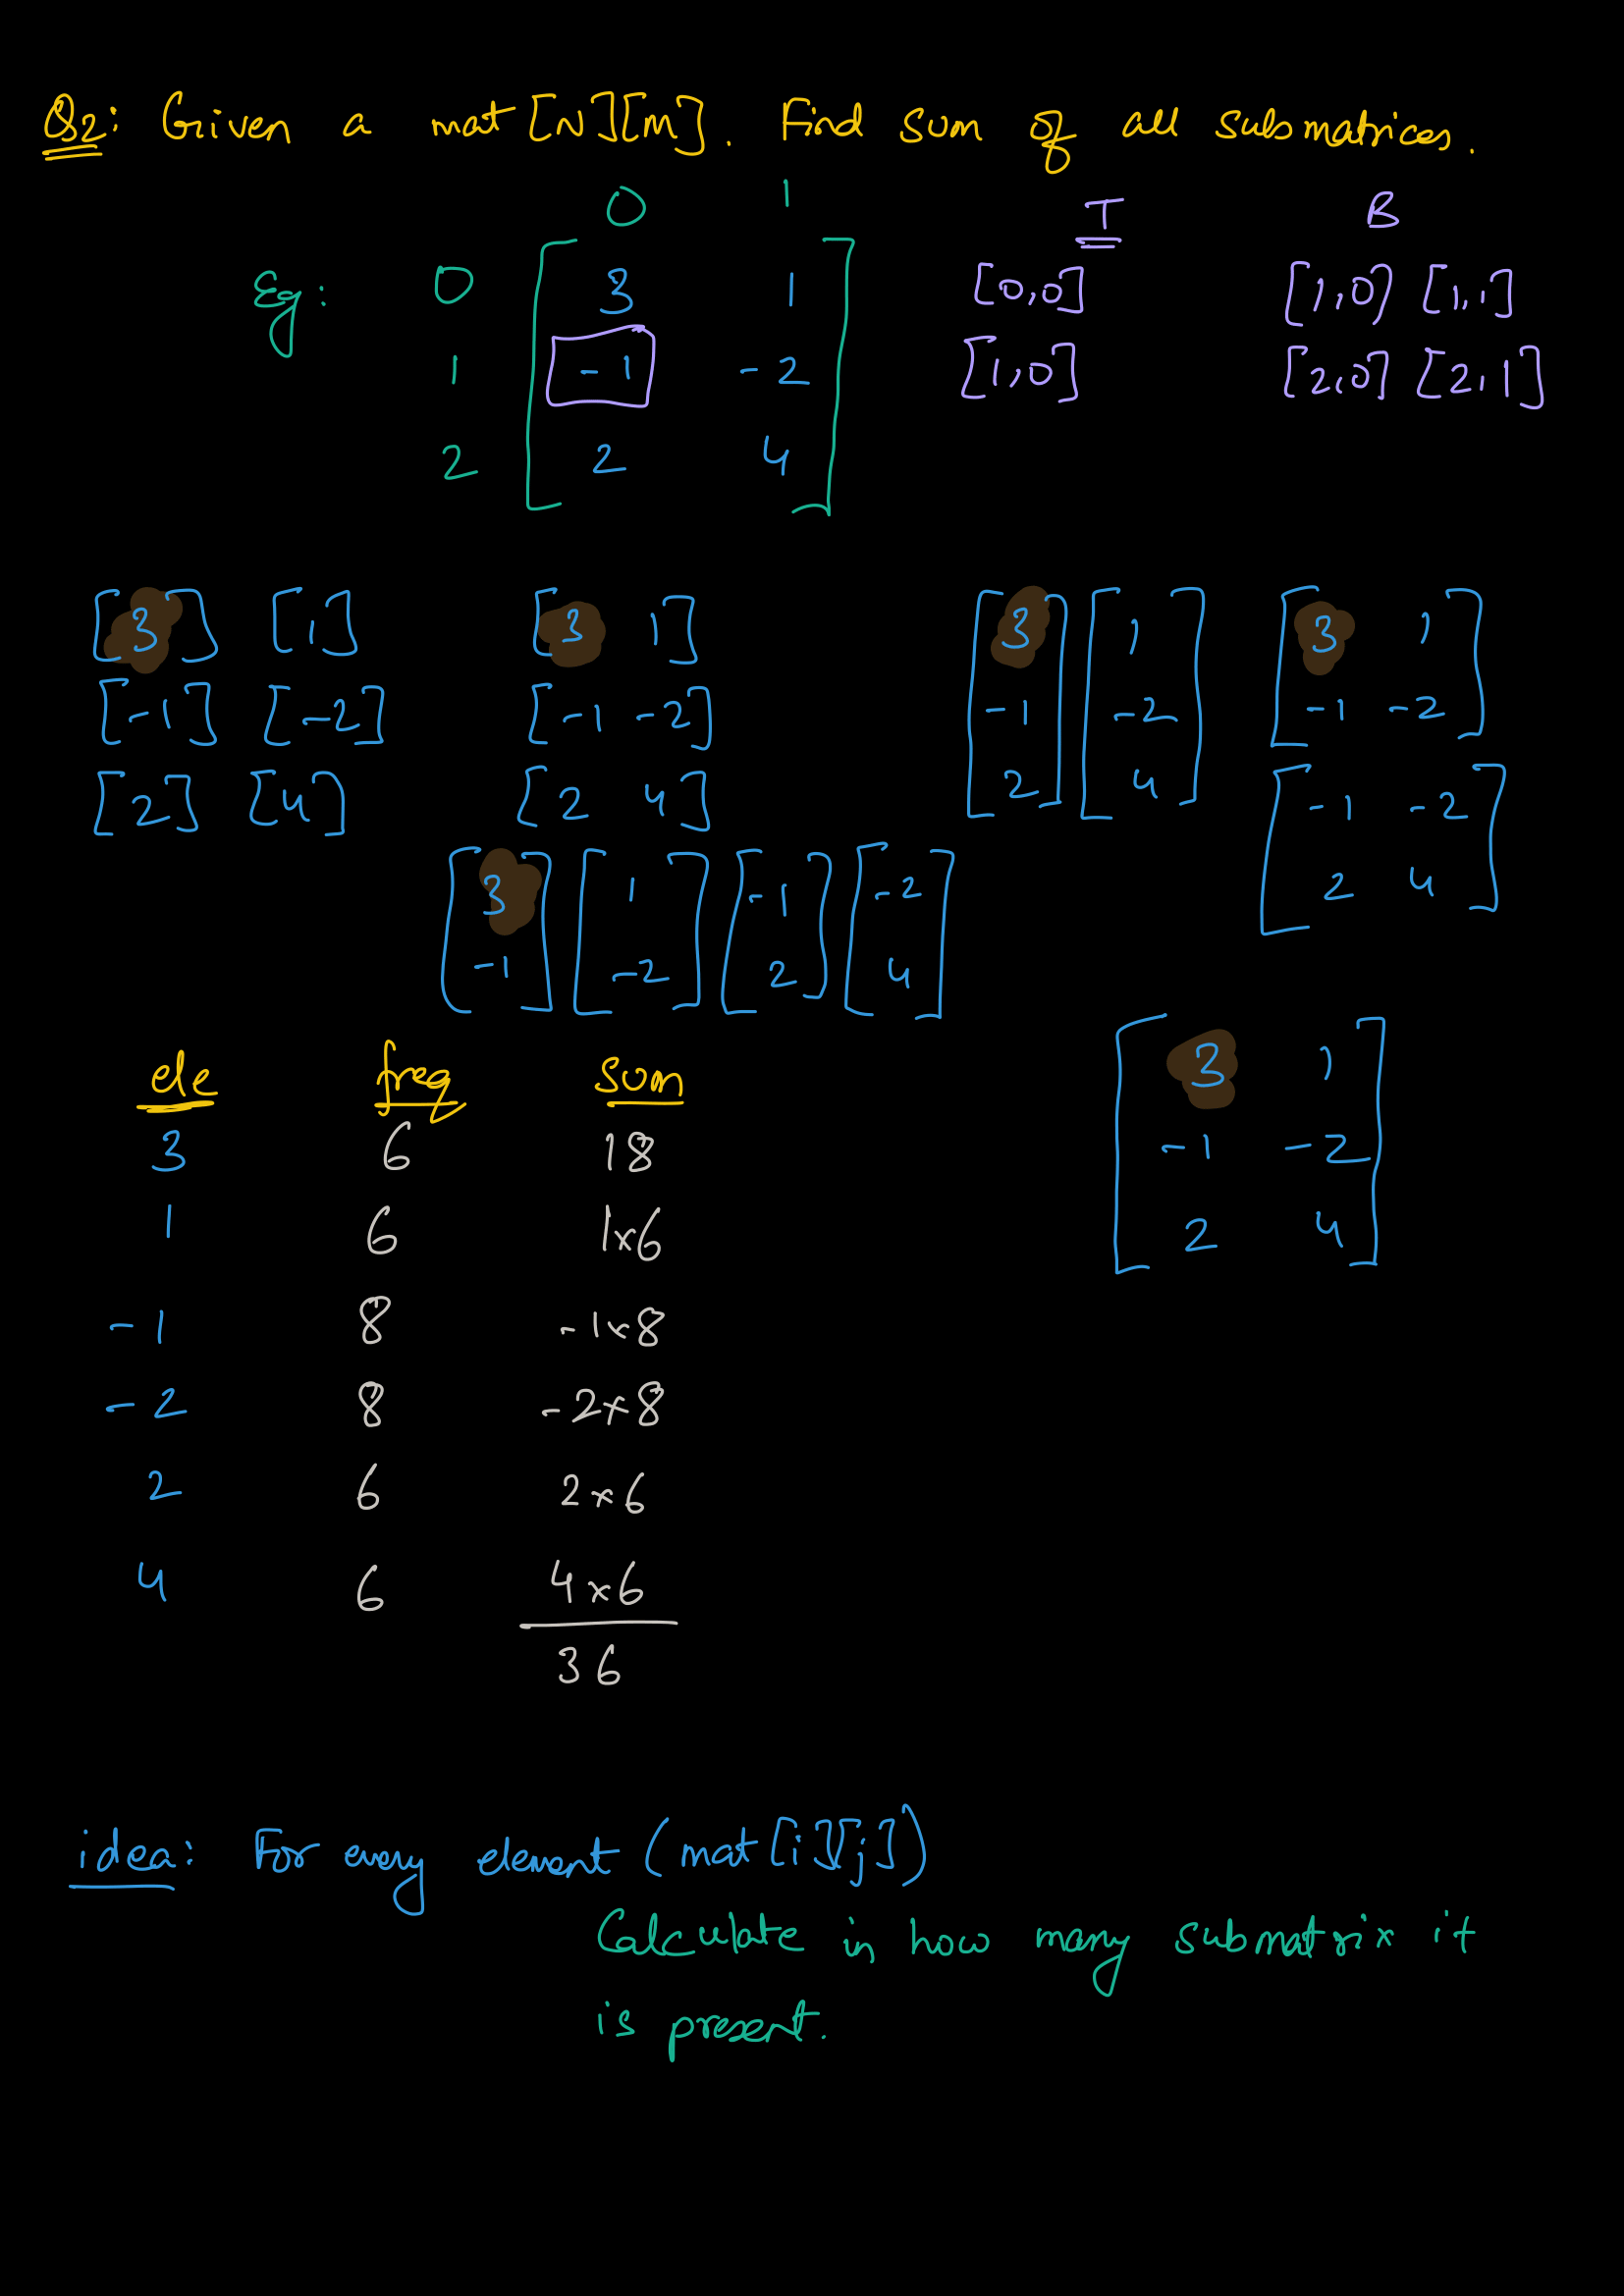 Q2: Given a mat[N][M]. Find sum of all submatrices.
0 1 T B
Eg: 0 3 1 [0,0] [1,0] [1,1]
1 -1 -2 [1,0] [2,0] [2,1]
2 2 4
[3] [1] [3 1] [3 [1 [3 1
[-1] [-2] [-1 -2] -1 -2 -1 -2]
[2] [4] [2 4] 2] 4] [-1 -2
[3 [1 [-1 [-2 2 4]
-1] -2] 2] 4]
[3 1
-1 -2
2 4]
ele freq sum
3 6 18
1 6 1x6
-1 8 -1x8
-2 8 -2x8
2 6 2x6
4 6 4x6
36
idea: For every element (mat[i][j])
Calculate in how many submatrix it
is present.